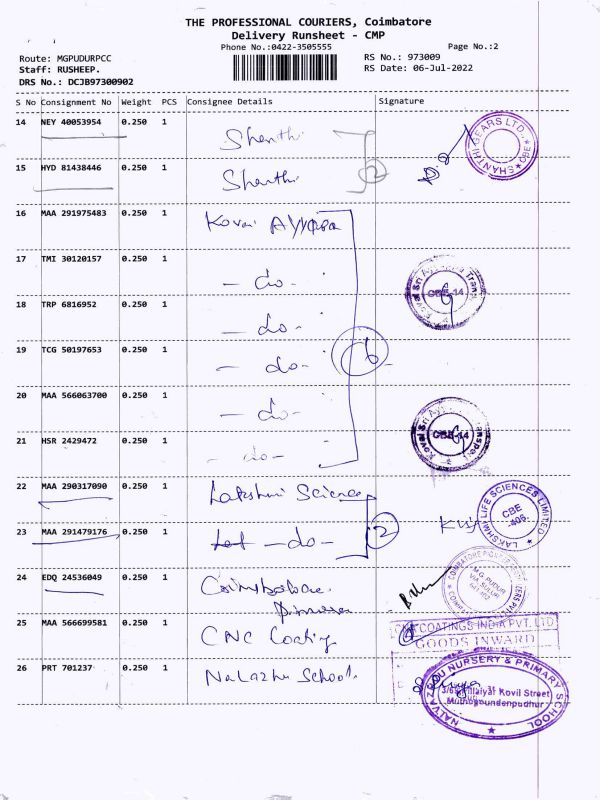 THE PROFESSIONAL COURIERS, Coimbatore
Delivery Runsheet - CMP
Phone No.:0422-3505555
Page No.:2
Route: MGPUDURPCC
Staff: RUSHEEP.
DRS No.: DCJB97300902
RS No.: 973009
RS Date: 06-Jul-2022
S No Consignment No Weight PCS Consignee Details Signature
14 NEY 40053954 0.250 1 Shanthi
SHANTHI GEARS LTD., CBE
15 HYD 81438446 0.250 1 Shanthi 2
16 MAA 291975483 0.250 1 Kovai Ayyappa
17 TMI 30120157 0.250 1 - do -
CBE-14
18 TRP 6816952 0.250 1 - do -
19 TCG 50197653 0.250 1 - do - 6
20 MAA 566063700 0.250 1 - do -
21 HSR 2429472 0.250 1 - do -
CBE-14
22 MAA 290317090 0.250 1 Lakshmi Science
LAKSHMI LIFE SCIENCES LIMITED
CBE
-406.
23 MAA 291479176 0.250 1 - do - 2
24 EDQ 24536049 0.250 1 Coimbatore
M.G. PUDUR
25 MAA 566699581 0.250 1 CNC Coating
COATINGS INDIA PVT. LTD
GOODS INWARD
26 PRT 701237 0.250 1 Nalazhu School
NURSERY & PRIMARY SCHOOL
Kovil Street
Muthugoundenpudhur